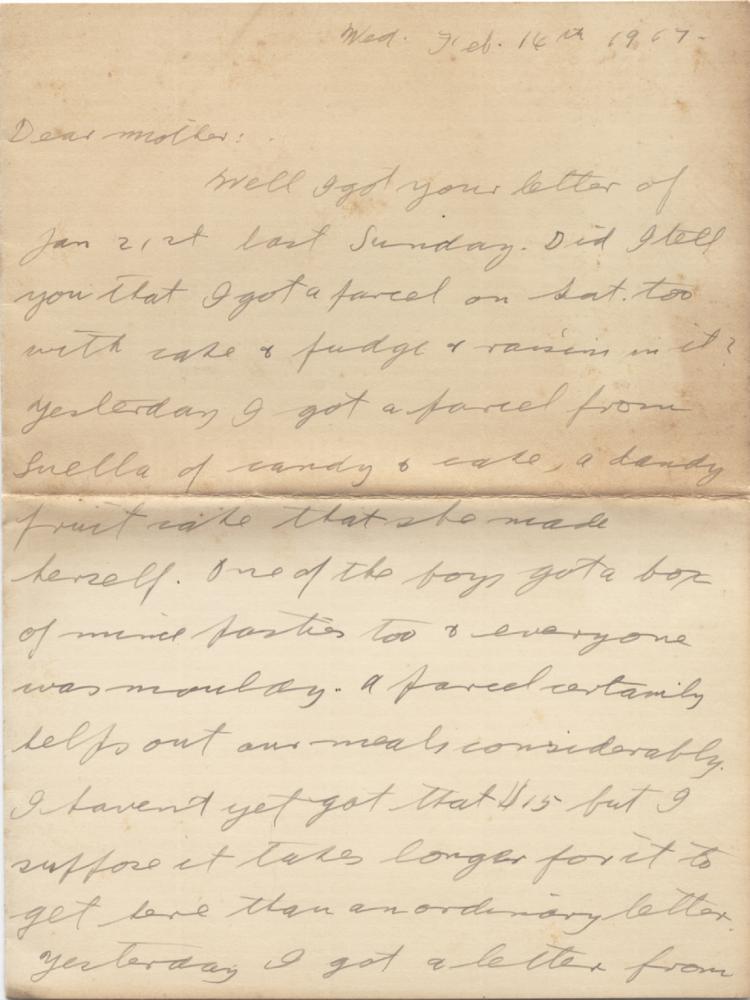 Wed. Feb. 14th 1917.
Dear mother:
Well I got your letter of
Jan 21st last Sunday. Did I tell
you that I got a parcel on Sat. too
with cake & fudge & raisins in it?
Yesterday I got a parcel from
Luella of candy & cake, a dandy
fruit cake that she made
herself. One of the boys got a box
of mince pasties too & everyone
was mouldy. A parcel certainly
helps out our meals considerably.
I haven't yet got that $15 but I
suppose it takes longer for it to
get here than an ordinary letter.
Yesterday I got a letter from